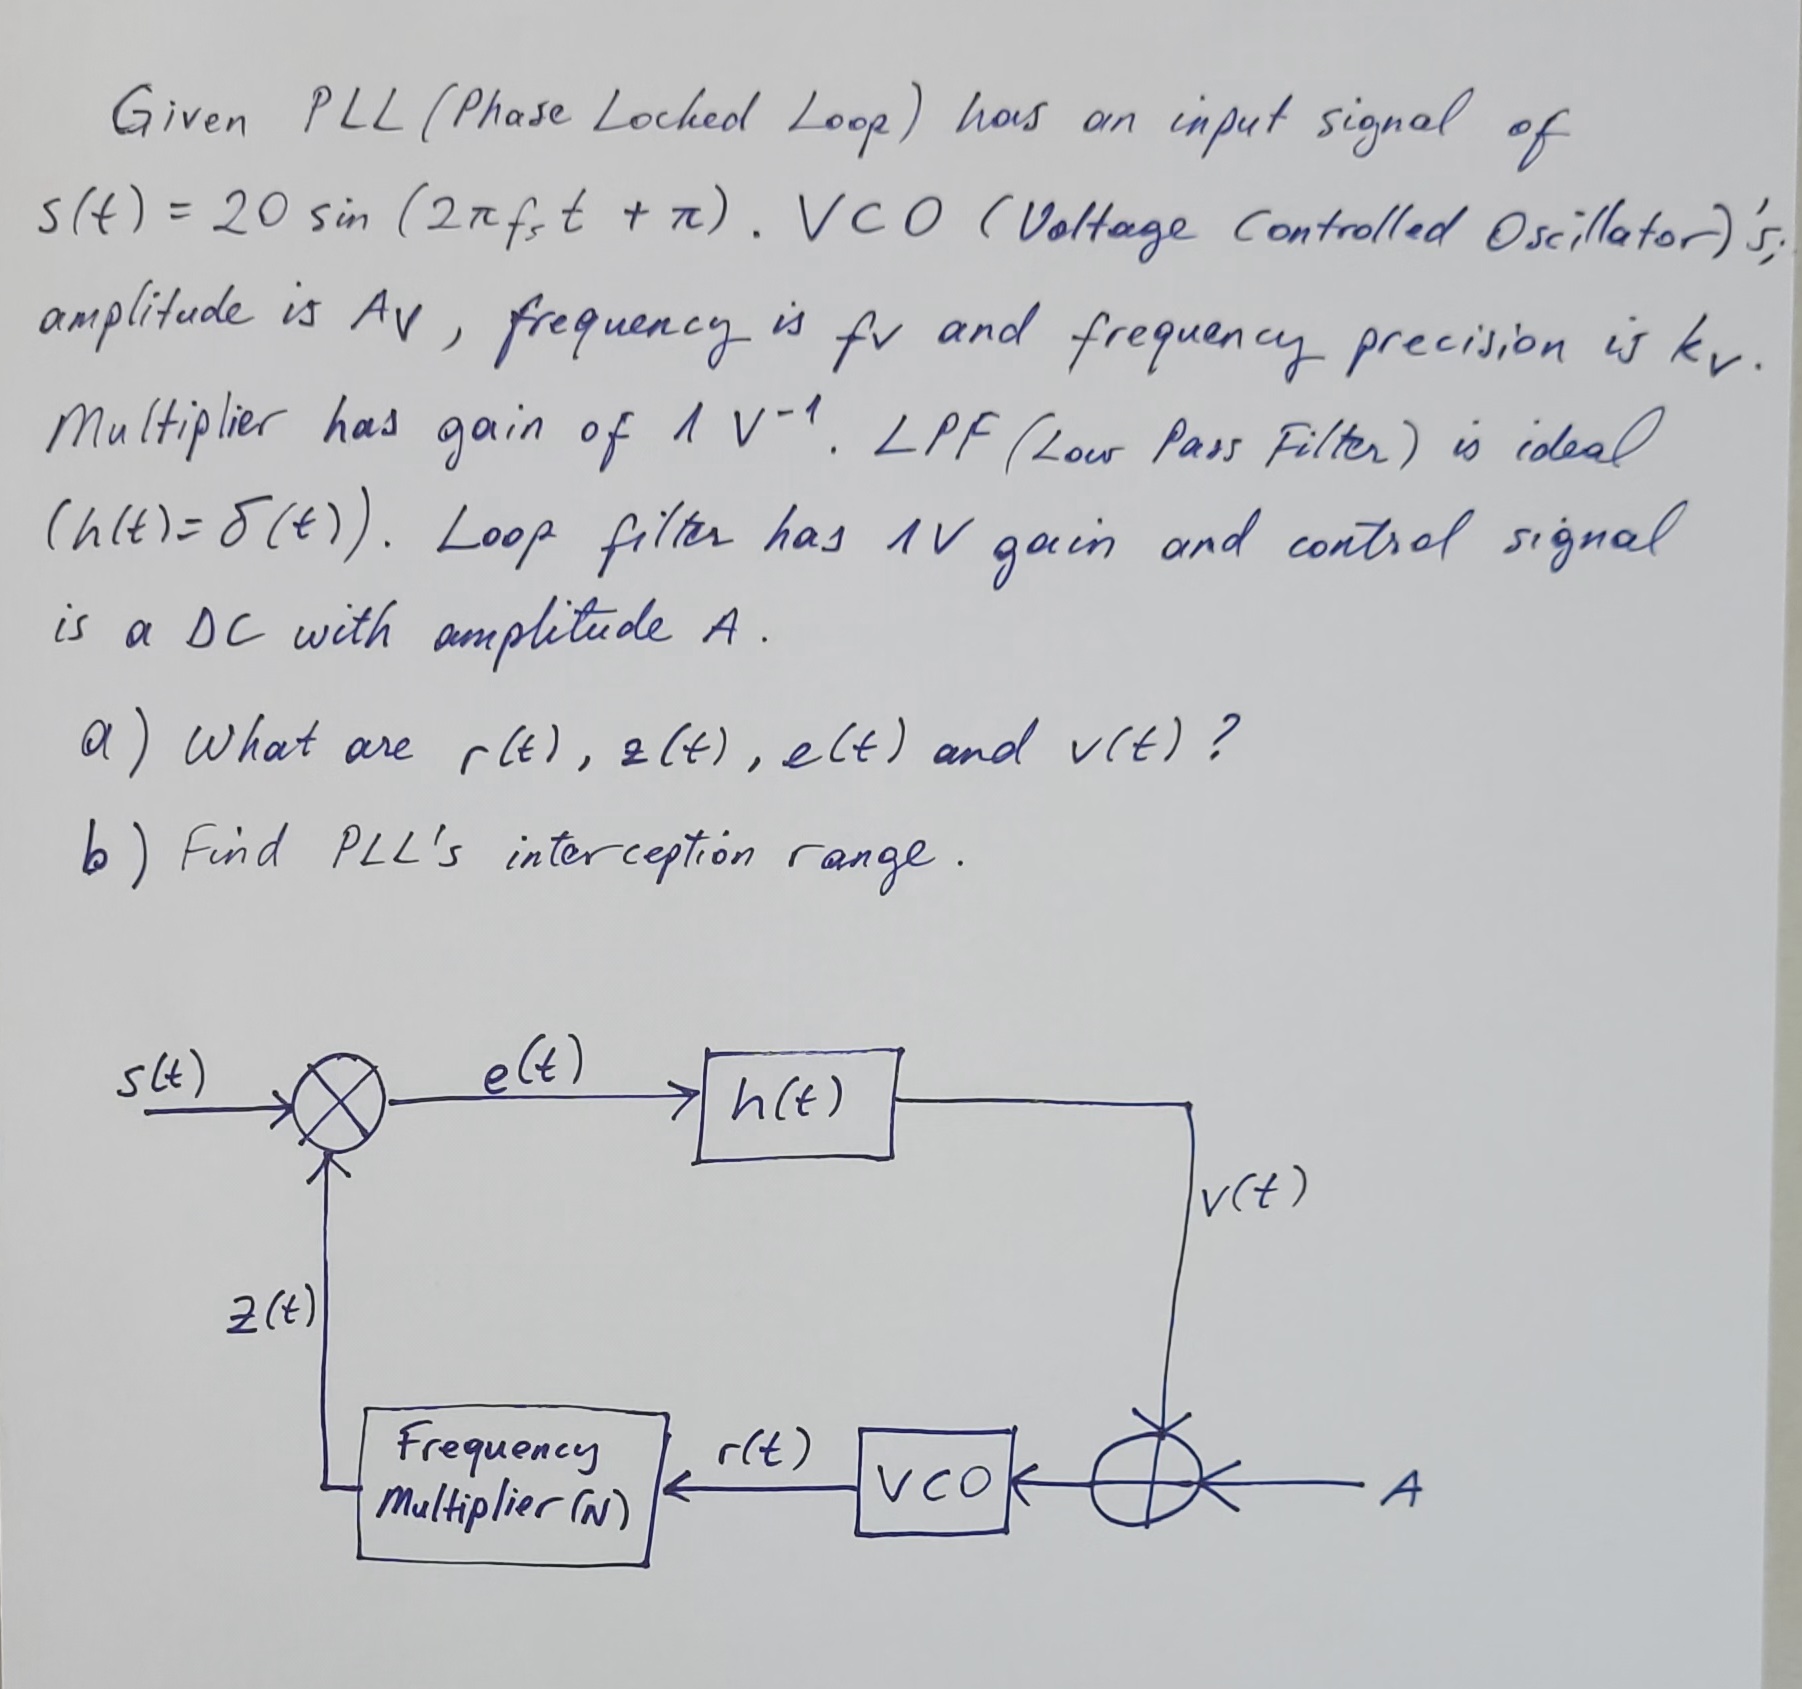 Given PLL (Phase Locked Loop) has an input signal of
s(t) = 20 sin (2π fs t + π). VCO (Voltage Controlled Oscillator)'s;
amplitude is Av, frequency is fv and frequency precision is kv.
Multiplier has gain of 1 V⁻¹. LPF (Low Pass Filter) is ideal
(h(t) = δ(t)). Loop filter has 1V gain and control signal
is a DC with amplitude A.
a) What are r(t), z(t), e(t) and v(t)?
b) Find PLL's interception range.
s(t)
e(t)
h(t)
v(t)
z(t)
Frequency
Multiplier (N)
r(t)
VCO
A